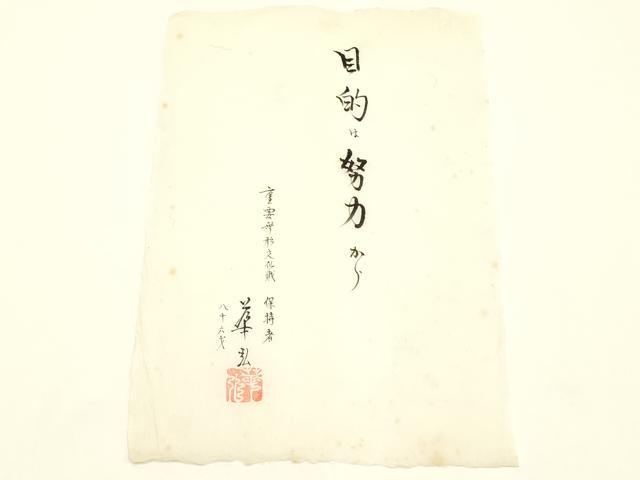 目的は努力から
重要無形文化財
保持者
華弘
八十六才
華弘